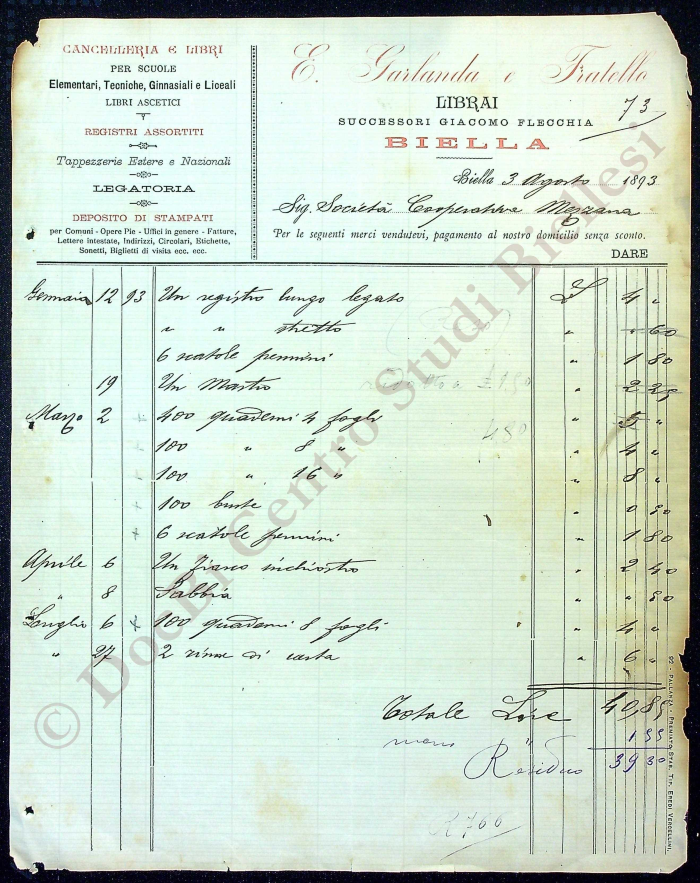 CANCELLERIA E LIBRI
PER SCUOLE
Elementari, Tecniche, Ginnasiali e Liceali
LIBRI ASCETICI
REGISTRI ASSORTITI
Tappezzerie Estere e Nazionali
LEGATORIA
DEPOSITO DI STAMPATI
per Comuni - Opere Pie - Uffici in genere - Fatture,
Lettere intestate, Indirizzi, Circolari, Etichette,
Sonetti, Biglietti di visita ecc. ecc.
E. Garlanda e Fratello
LIBRAI
73
SUCCESSORI GIACOMO FLECCHIA
BIELLA
Biella 3 Agosto 1893
Sig. Società Cooperativa Mezzana
Per le seguenti merci vendutevi, pagamento al nostro domicilio senza sconto.
DARE
Gennaio 12 93 Un registro lungo legato £ 4 "
" " stretto " " 60
6 scatole pennini " 1 80
19 Un Mastro ridotto a £ 1,50 " 2 25
Marzo 2 + 400 quaderni 4 fogli 480 " 5 "
+ 100 " 8 " " 4 "
+ 100 " 16 " " 8 "
+ 100 buste " 0 20
+ 6 scatole pennini " 1 80
Aprile 6 Un fiasco inchiostro " 2 40
" 8 Sabbia " " 80
Luglio 6 + 100 quaderni 8 fogli " 4 "
" 27 2 risme di carta " 6 "
Totale Lire 40,85
meno " 1 55
Residuo 39 30
R 766
PALLANZA - PREMIATO STAB. TIP. EREDI VERCELLINI.
© DocBi Centro Studi Biellesi